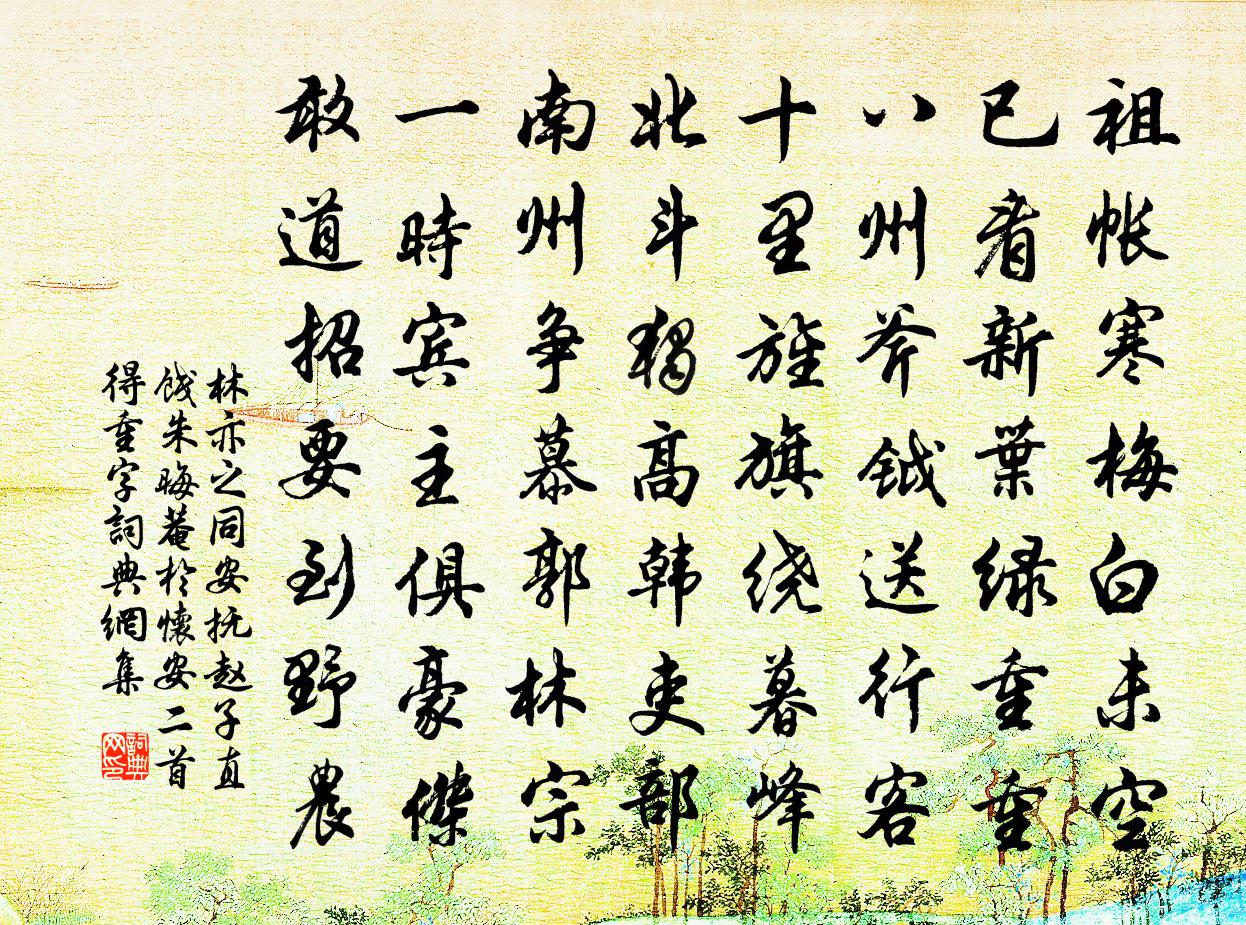 祖帐寒梅白未空
已看新葉绿重重
八州斧钺送行客
十里旌旗绕暮峰
北斗独高韩吏部
南州争慕郭林宗
一時宾主俱豪傑
敢道招要到野農
林亦之同安抚赵子直
饯朱晦菴於懷安二首
得重字詞典網集
詞典网印